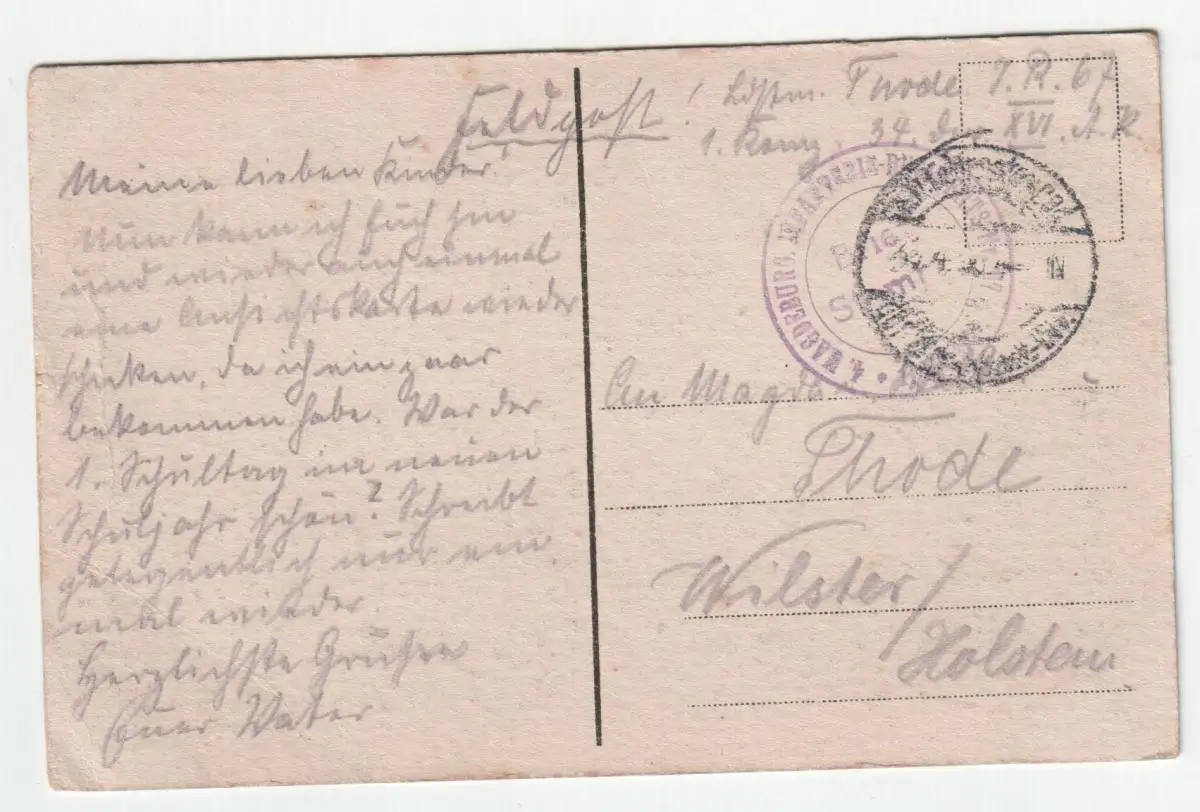 Feldpost! Ldstm. Thode I.R. 67
1. Komp. 34. Div. XVI. A.K.
Meine lieben Kinder!
Nun kann ich Euch hin
und wieder auch einmal
eine Ansichtskarte wieder
schicken, da ich ein paar
bekommen habe. War der
1. Schultag im neuen
Schuljahr schön? Schreibt
gelegentlich nur ein
mal wieder.
Herzlichste Grüße
Euer Vater
4. MAGDEBURG. INFANTERIE-
An Magda
Thode
Wilster/
Holstein